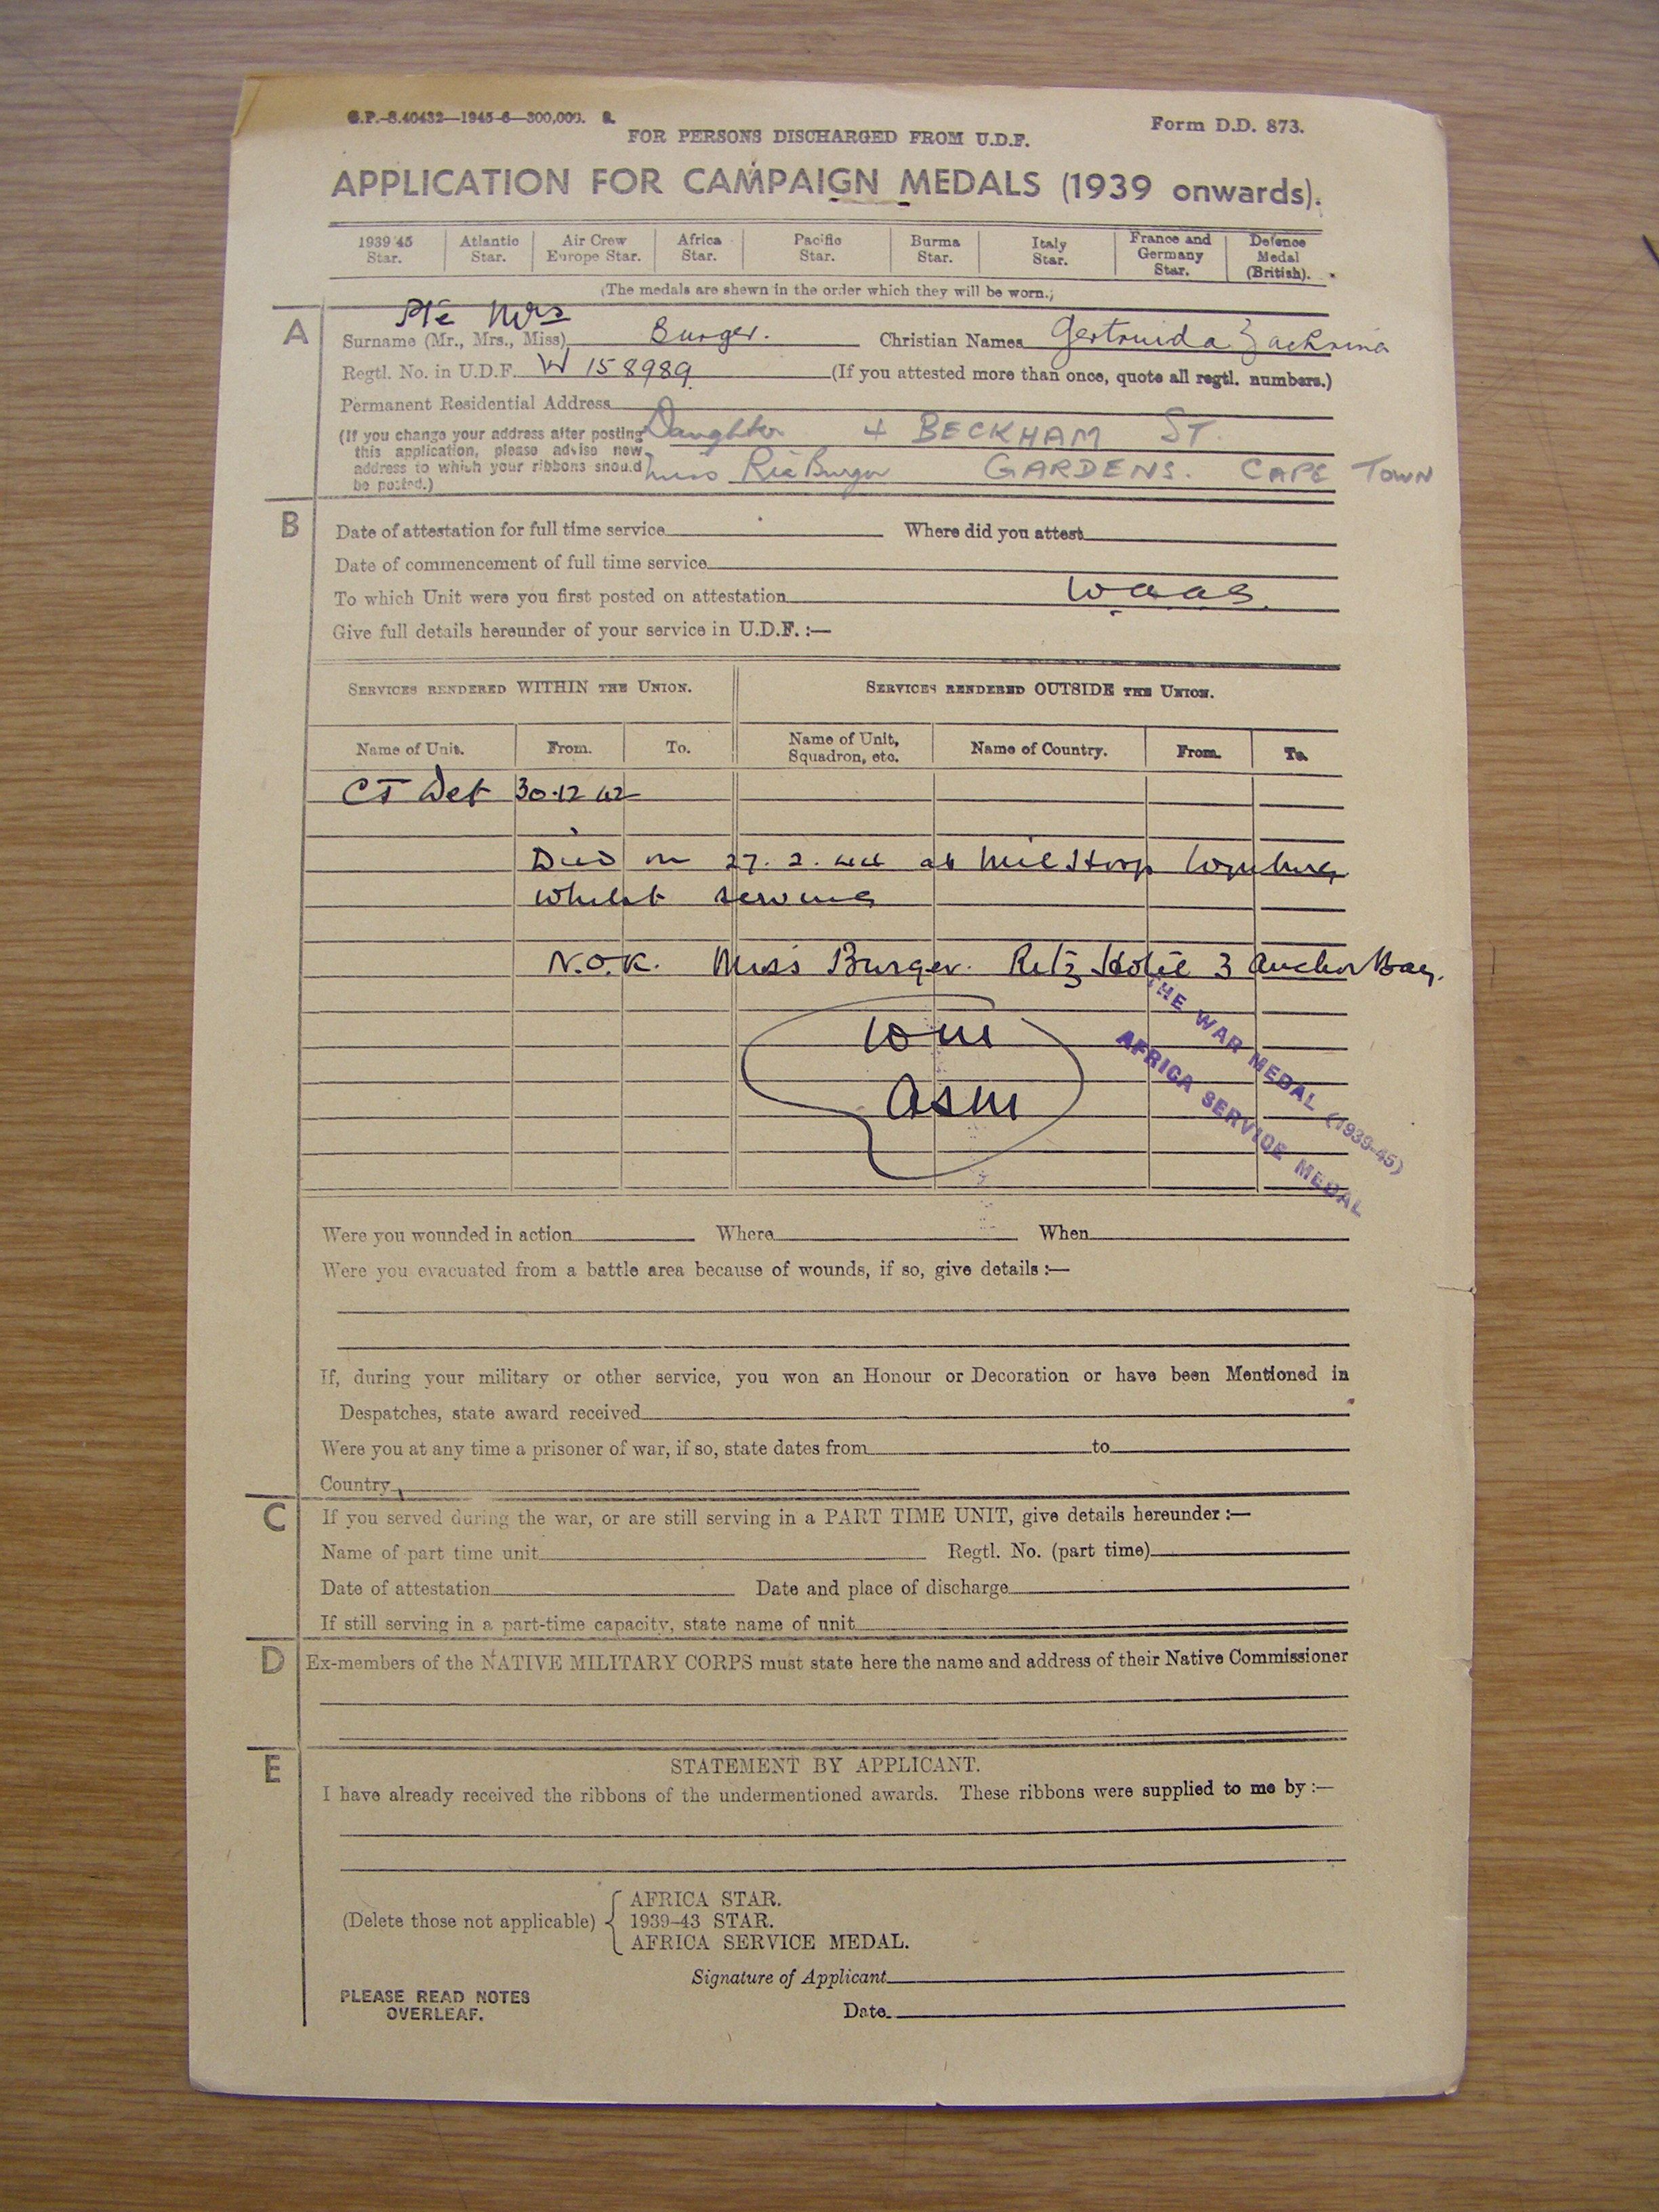 G.P.-S.40432—1945-6—300,000. S.
Form D.D. 873.
FOR PERSONS DISCHARGED FROM U.D.F.
APPLICATION FOR CAMPAIGN MEDALS (1939 onwards).
1939 45 Star. Atlantic Star. Air Crew Europe Star. Africa Star. Pacific Star. Burma Star. Italy Star. France and Germany Star. Defence Medal (British).
(The medals are shewn in the order which they will be worn.)
A
Pte Mrs
Surname (Mr., Mrs., Miss) Burger. Christian Names Gertruida Zachrina
Regtl. No. in U.D.F. W 158989 (If you attested more than once, quote all regtl. numbers.)
Permanent Residential Address
(If you change your address after posting Daughter 4 BECKHAM ST.
this application, please advise new
address to which your ribbons should Miss Rie Burger GARDENS. CAPE TOWN
be posted.)
B
Date of attestation for full time service Where did you attest
Date of commencement of full time service
To which Unit were you first posted on attestation Waas.
Give full details hereunder of your service in U.D.F. :—
SERVICES RENDERED WITHIN THE UNION. SERVICES RENDERED OUTSIDE THE UNION.
Name of Unit. From. To. Name of Unit, Squadron, etc. Name of Country. From. To.
CT Det 30.12 42
Died on 27. 2. 44 at Mil Hosp Wynberg
whilst serving
N.O.K. Miss Burger. Ritz Hotel 3 Anchor Bay.
THE WAR MEDAL (1939-45)
AFRICA SERVICE MEDAL
WM
ASM
Were you wounded in action Where When
Were you evacuated from a battle area because of wounds, if so, give details :—
If, during your military or other service, you won an Honour or Decoration or have been Mentioned in
Despatches, state award received
Were you at any time a prisoner of war, if so, state dates from to
Country
C
If you served during the war, or are still serving in a PART TIME UNIT, give details hereunder :—
Name of part time unit Regtl. No. (part time)
Date of attestation Date and place of discharge
If still serving in a part-time capacity, state name of unit
D
Ex-members of the NATIVE MILITARY CORPS must state here the name and address of their Native Commissioner
E
STATEMENT BY APPLICANT.
I have already received the ribbons of the undermentioned awards. These ribbons were supplied to me by :—
AFRICA STAR.
(Delete those not applicable) 1939–43 STAR.
AFRICA SERVICE MEDAL.
Signature of Applicant
PLEASE READ NOTES
OVERLEAF.
Date